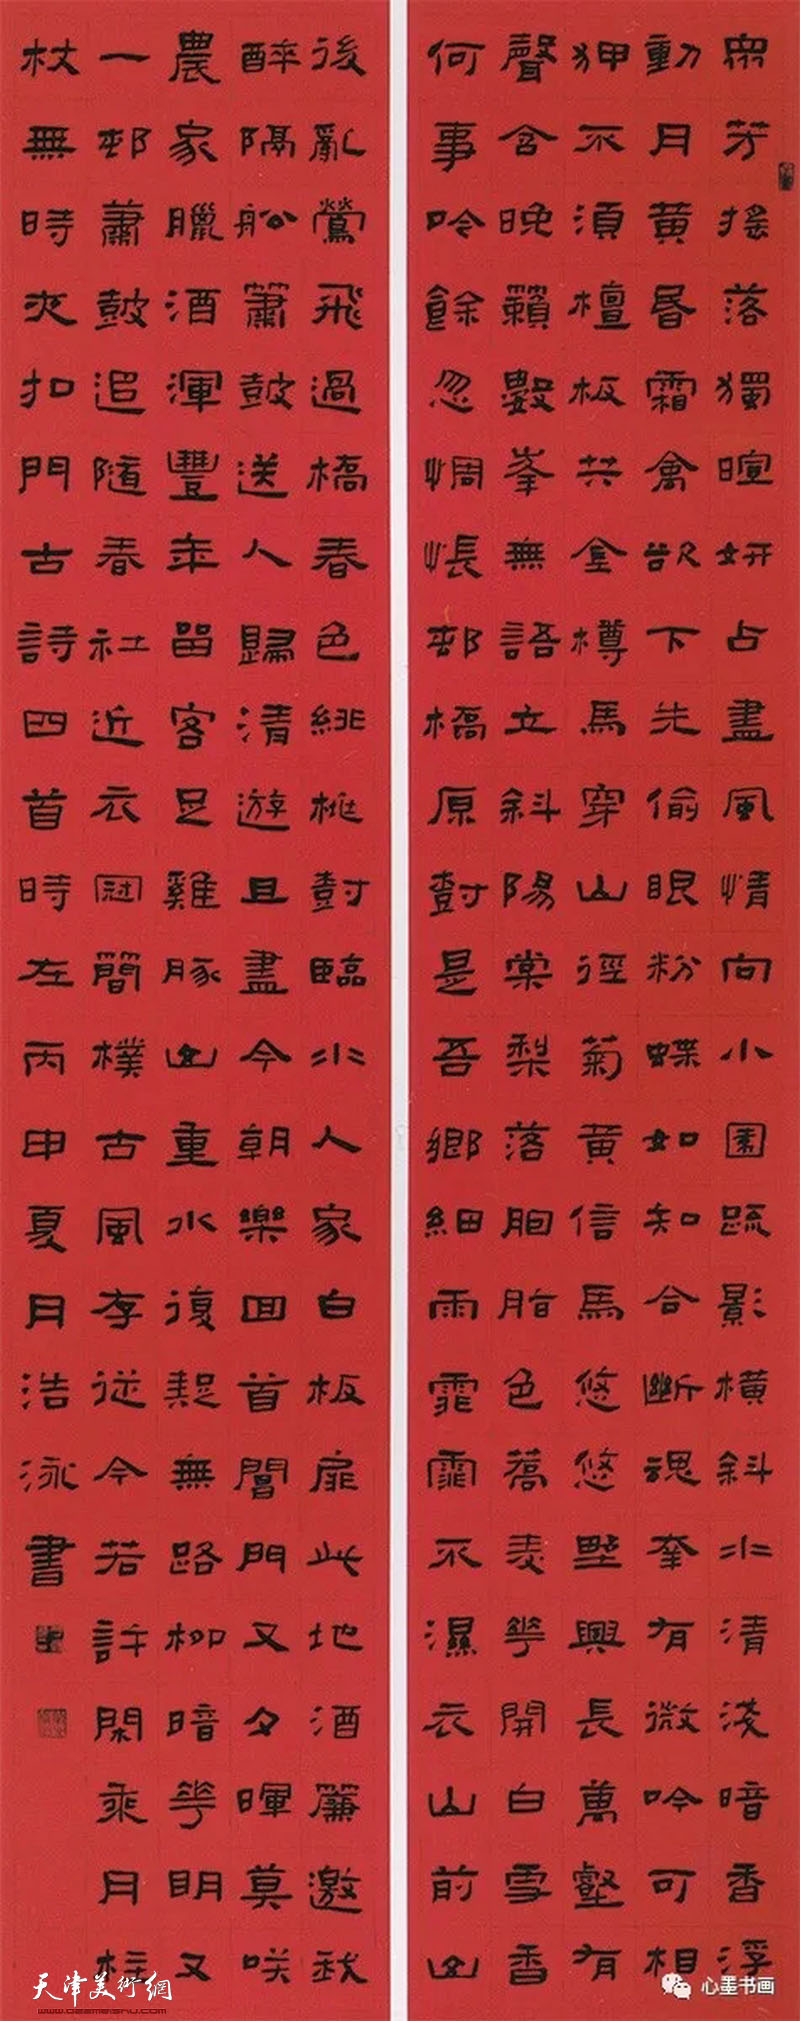 眾芳搖落獨暄妍占盡風情向小園疏影橫斜水清淺暗香浮
動月黃昏霜禽欲下先偷眼粉蝶如知合斷魂幸有微吟可相
狎不須檀板共金樽馬穿山徑菊黃信馬悠悠野興長萬壑有
聲含晚籟數峯無語立斜陽棠梨落胭脂色蕎麥華開白雪香
何事吟餘忽惆悵邨橋原尌是吾鄉細雨霏霏不濕衣山前山
後亂鶯飛過橋春色緋桃尌臨水人家白板扉此地酒簾邀我
醉隔船簫鼓送人歸清游且盡今朝樂回首閶門又夕暉莫咲
農家臘酒渾豐年留客足雞豚山重水復疑無路柳暗華明又
一邨蕭鼓追隨春社近衣冠簡樸古風存從今若許閑乘月柱
杖無時夜扣門古詩四首時在丙申夏月浩泳書
天津美術網
www.022meishu.com
心墨书画